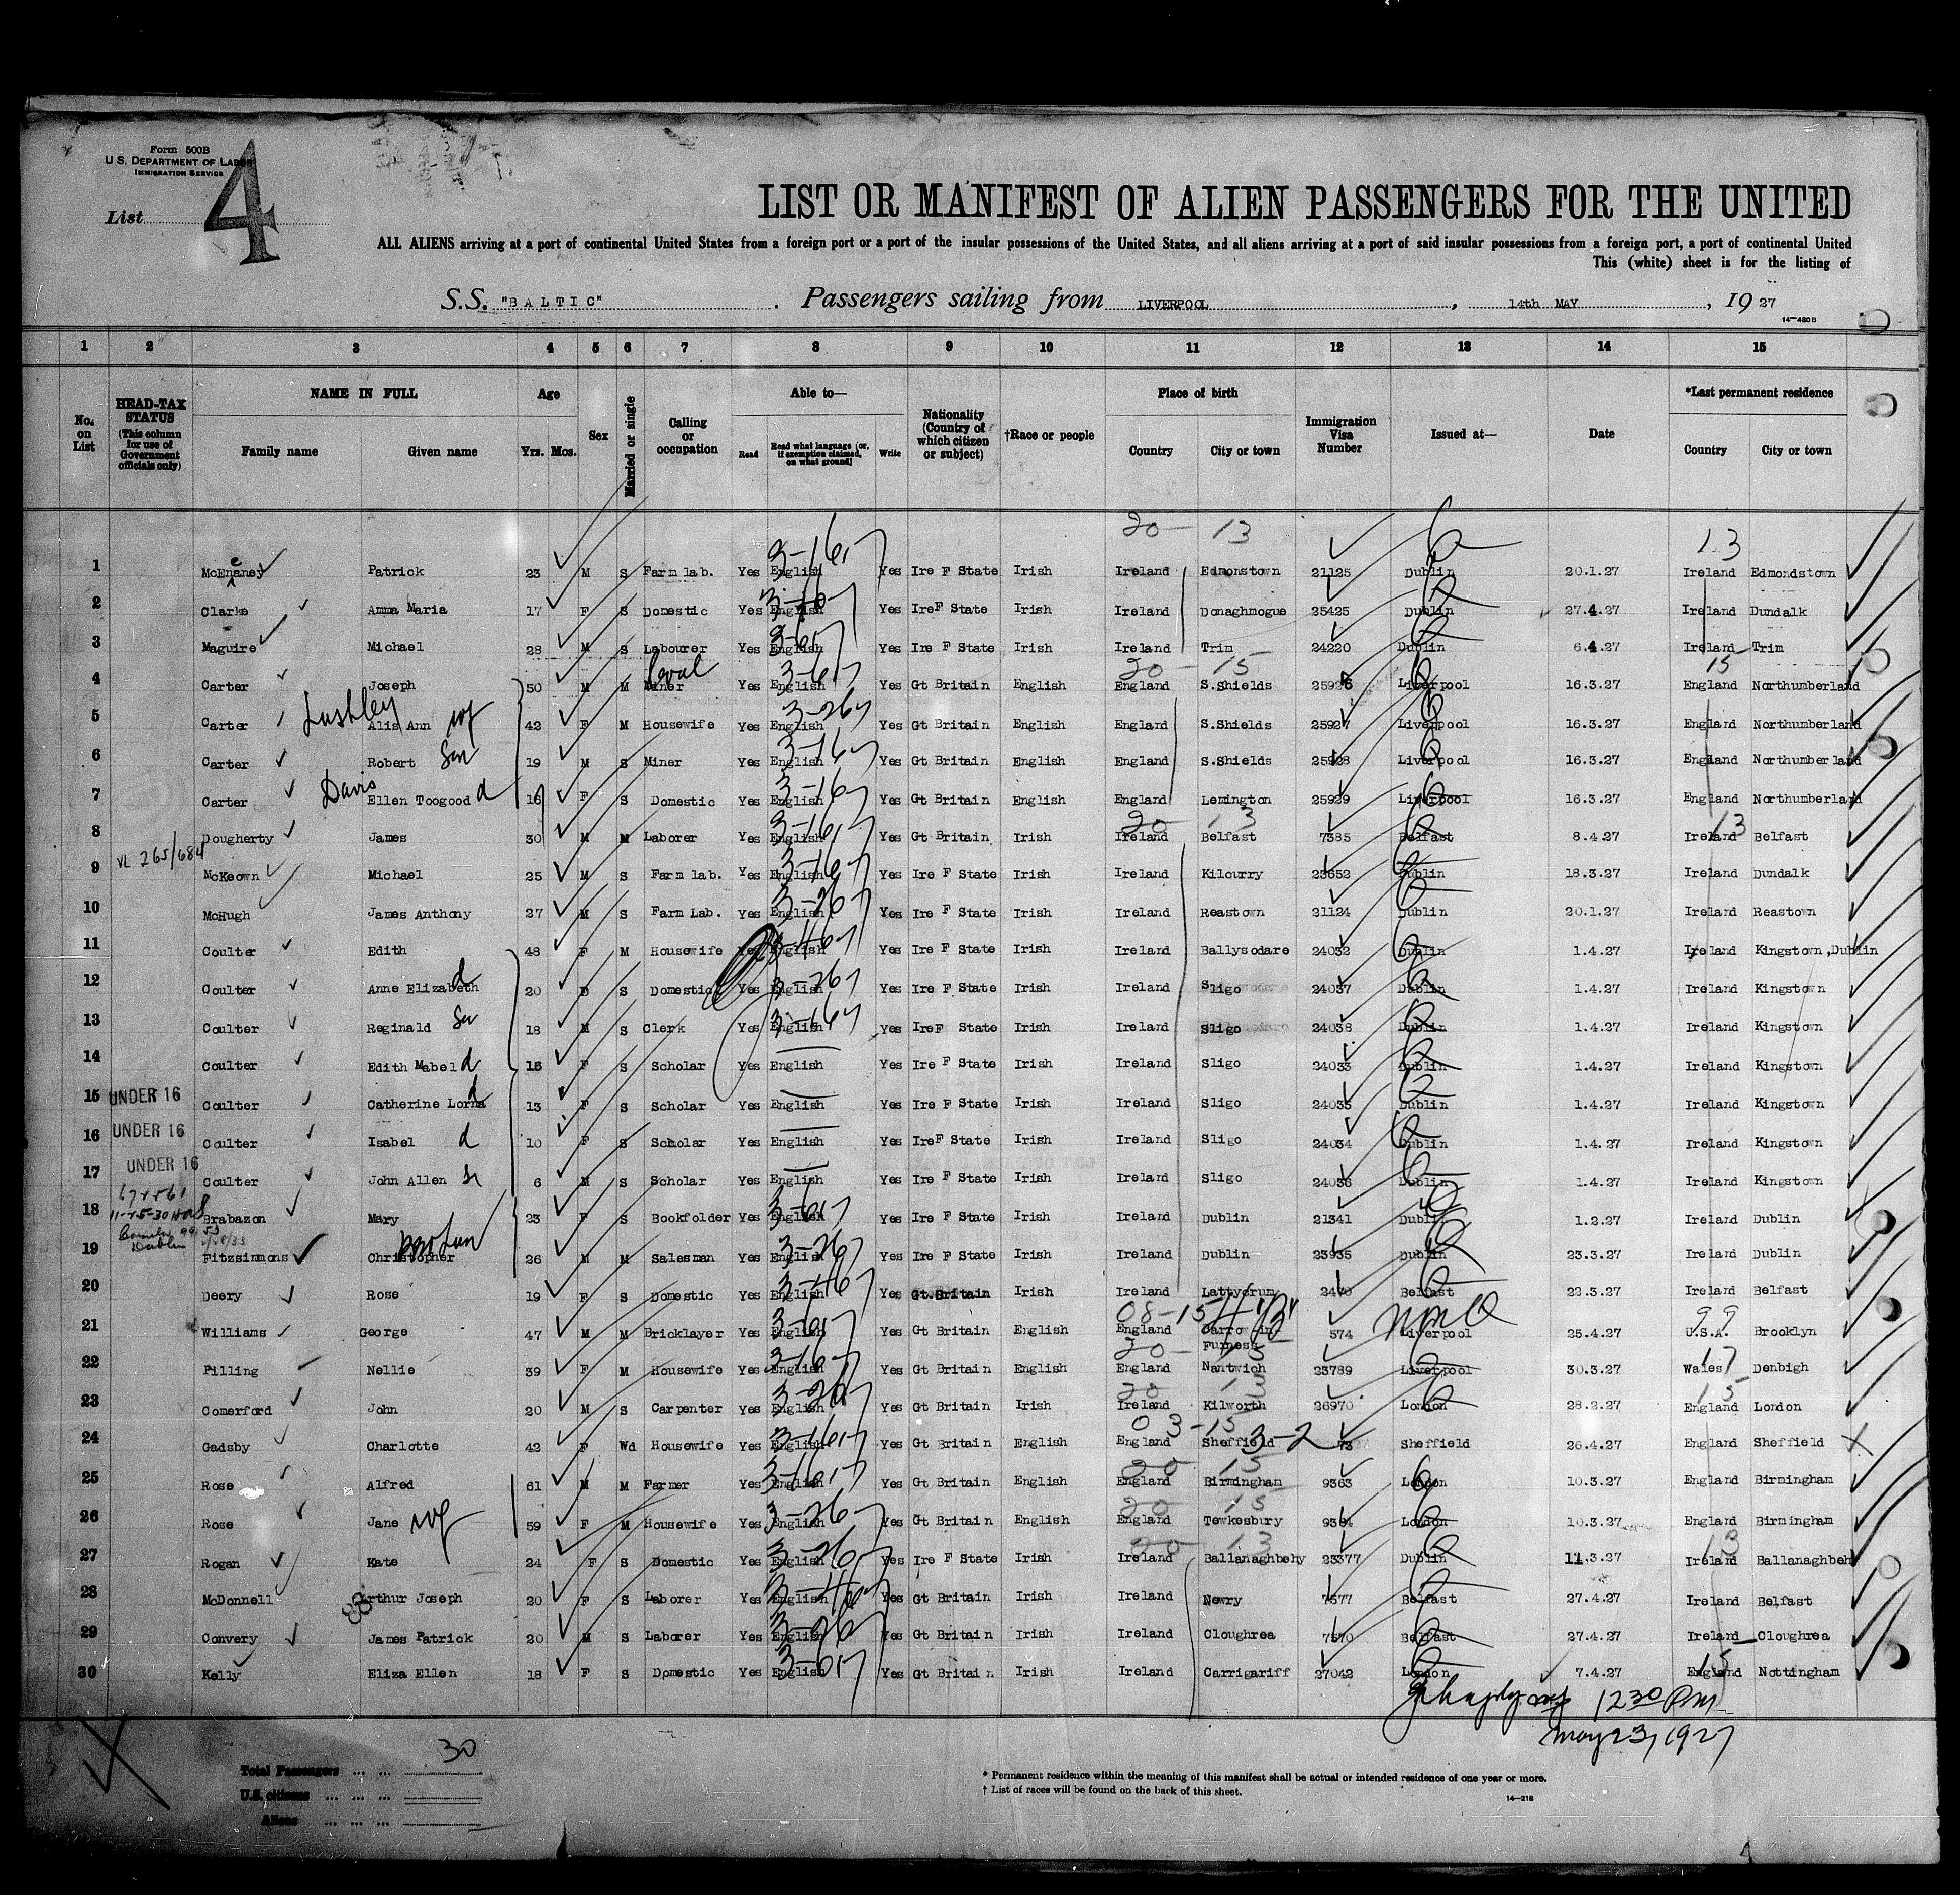 Form 500B
U.S. DEPARTMENT OF LABOR
IMMIGRATION SERVICE
List 4
LIST OR MANIFEST OF ALIEN PASSENGERS FOR THE UNITED
ALL ALIENS arriving at a port of continental United States from a foreign port or a port of the insular possessions of the United States, and all aliens arriving at a port of said insular possessions from a foreign port, a port of continental United
This (white) sheet is for the listing of
S.S. "BALTIC" . Passengers sailing from LIVERPOOL , 14th MAY , 19 27
14—480B
1 2 3 4 5 6 7 8 9 10 11 12 13 14 15
No. on List
HEAD-TAX STATUS (This column for use of Government officials only)
NAME IN FULL
Family name Given name
Age
Yrs. Mos.
Sex
Married or single
Calling or occupation
Able to—
Read Read what language (or, if exemption claimed, on what ground) Write
Nationality (Country of which citizen or subject)
†Race or people
Place of birth
Country City or town
Immigration Visa Number
Issued at—
Date
*Last permanent residence
Country City or town
20 13 13
1 McEnaney Patrick 23 M S Farm lab. Yes English Yes Ire F State Irish Ireland Edmonstown 21125 Dublin 20.1.27 Ireland Edmondstown
2 Clarke Amma Maria 17 F S Domestic Yes English Yes Ire F State Irish Ireland Donaghmogue 25425 Dublin 27.4.27 Ireland Dundalk
3 Maguire Michael 28 M S Labourer Yes English Yes Ire F State Irish Ireland Trim 24220 Dublin 6.4.27 Ireland Trim
20 15 15
4 Carter Joseph 50 M M Miner Yes English Yes Gt Britain English England S.Shields 25926 Liverpool 16.3.27 England Northumberland
5 Carter Lushley Alis Ann wf 42 F M Housewife Yes English Yes Gt Britain English England S.Shields 25927 Liverpool 16.3.27 England Northumberland
6 Carter Robert Son 19 M S Miner Yes English Yes Gt Britain English England S.Shields 25928 Liverpool 16.3.27 England Northumberland
7 Carter Davis Ellen Toogood d 16 F S Domestic Yes English Yes Gt Britain English England Lemington 25929 Liverpool 16.3.27 England Northumberland
20 13 13
8 Dougherty James 30 M M Laborer Yes English Yes Gt Britain Irish Ireland Belfast 7385 Belfast 8.4.27 Ireland Belfast
VL 265/684
9 McKeown Michael 25 M S Farm lab. Yes English Yes Ire F State Irish Ireland Kilcurry 23652 Dublin 18.3.27 Ireland Dundalk
10 McHugh James Anthony 27 M S Farm Lab. Yes English Yes Ire F State Irish Ireland Reastown 21124 Dublin 20.1.27 Ireland Reastown
11 Coulter Edith 48 F M Housewife Yes English Yes Ire F State Irish Ireland Ballysodare 24032 Dublin 1.4.27 Ireland Kingstown,Dublin
12 Coulter Anne Elizabeth d 20 S Domestic Yes English Yes Ire F State Irish Ireland Sligo 24037 Dublin 1.4.27 Ireland Kingstown
13 Coulter Reginald Son 18 M S Clerk Yes English Yes Ire F State Irish Ireland Sligo 24038 Dublin 1.4.27 Ireland Kingstown
14 Coulter Edith Mabel d 16 F S Scholar Yes English Yes Ire F State Irish Ireland Sligo 24033 Dublin 1.4.27 Ireland Kingstown
15 UNDER 16 Coulter Catherine Lorna d 13 F S Scholar Yes English Yes Ire F State Irish Ireland Sligo 24035 Dublin 1.4.27 Ireland Kingstown
16 UNDER 16 Coulter Isabel d 10 F S Scholar Yes English Yes Ire F State Irish Ireland Sligo 24034 Dublin 1.4.27 Ireland Kingstown
17 UNDER 16 Coulter John Allen 6 M S Scholar Yes English Yes Ire F State Irish Ireland Sligo 24036 Dublin 1.4.27 Ireland Kingstown
18 Brabazon Mary 23 F S Bookfolder Yes English Yes Ire F State Irish Ireland Dublin 21341 Dublin 1.2.27 Ireland Dublin
19 Fitzsimmons Christopher 26 M M Salesman Yes English Yes Ire F State Irish Ireland Dublin 23935 Dublin 23.3.27 Ireland Dublin
20 Deery Rose 19 F S Domestic Yes English Yes Gt.Britain Irish Ireland Lattycrum 2470 Belfast 22.3.27 Ireland Belfast
08-15 99
21 Williams George 47 M M Bricklayer Yes English Yes Gt Britain English England Furness 574 Liverpool 25.4.27 U.S.A. Brooklyn
20 15 17
22 Pilling Nellie 39 F M Housewife Yes English Yes Gt Britain English England Nantwich 23789 Liverpool 30.3.27 Wales Denbigh
20 15
23 Comerford John 20 M S Carpenter Yes English Yes Gt Britain Irish Ireland Kilworth 26970 London 28.2.27 England London
03-15
24 Gadsby Charlotte 42 F Wd Housewife Yes English Yes Gt Britain English England Sheffield 3-2 73 Sheffield 26.4.27 England Sheffield
20 15
25 Rose Alfred 61 M M Farmer Yes English Yes Gt Britain English England Birmingham 9363 London 10.3.27 England Birmingham
20 15
26 Rose Jane wf 59 F M Housewife Yes English Yes Gt Britain English England Tewkesbury 9364 London 10.3.27 England Birmingham
20 13 13
27 Rogan Kate 24 F S Domestic Yes English Yes Ire F State Irish Ireland Ballanaghbehy 23377 Dublin 11.3.27 Ireland Ballanaghbeh
28 McDonnell Arthur Joseph 20 F S Laborer Yes English Yes Gt Britain Irish Ireland Newry 7577 Belfast 27.4.27 Ireland Belfast
29 Convery James Patrick 20 M S Laborer Yes English Yes Gt Britain Irish Ireland Cloughrea 7570 Belfast 27.4.27 Ireland Cloughrea
15
30 Kelly Eliza Ellen 18 F S Domestic Yes English Yes Gt Britain Irish Ireland Carrigariff 27042 London 7.4.27 England Nottingham
1230 Pm
May 23, 1927
Total Passengers ... ... 30
U.S. citizens ... ... ...
Aliens ... ... ...
* Permanent residence within the meaning of this manifest shall be actual or intended residence of one year or more.
† List of races will be found on the back of this sheet.
14—218